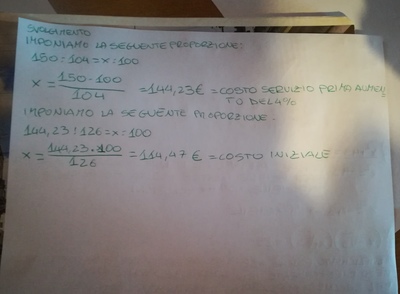 SVOLGIMENTO
IMPONIAMO LA SEGUENTE PROPORZIONE:
150:104=x:100
x = 150·100 / 104 = 144,23€ = COSTO SERVIZIO PRIMO AUMEN
TO DEL 4%
IMPONIAMO LA SEGUENTE PROPORZIONE.
144,23:126=x:100
x = 144,23·100 / 126 = 114,47€ = COSTO INIZIALE